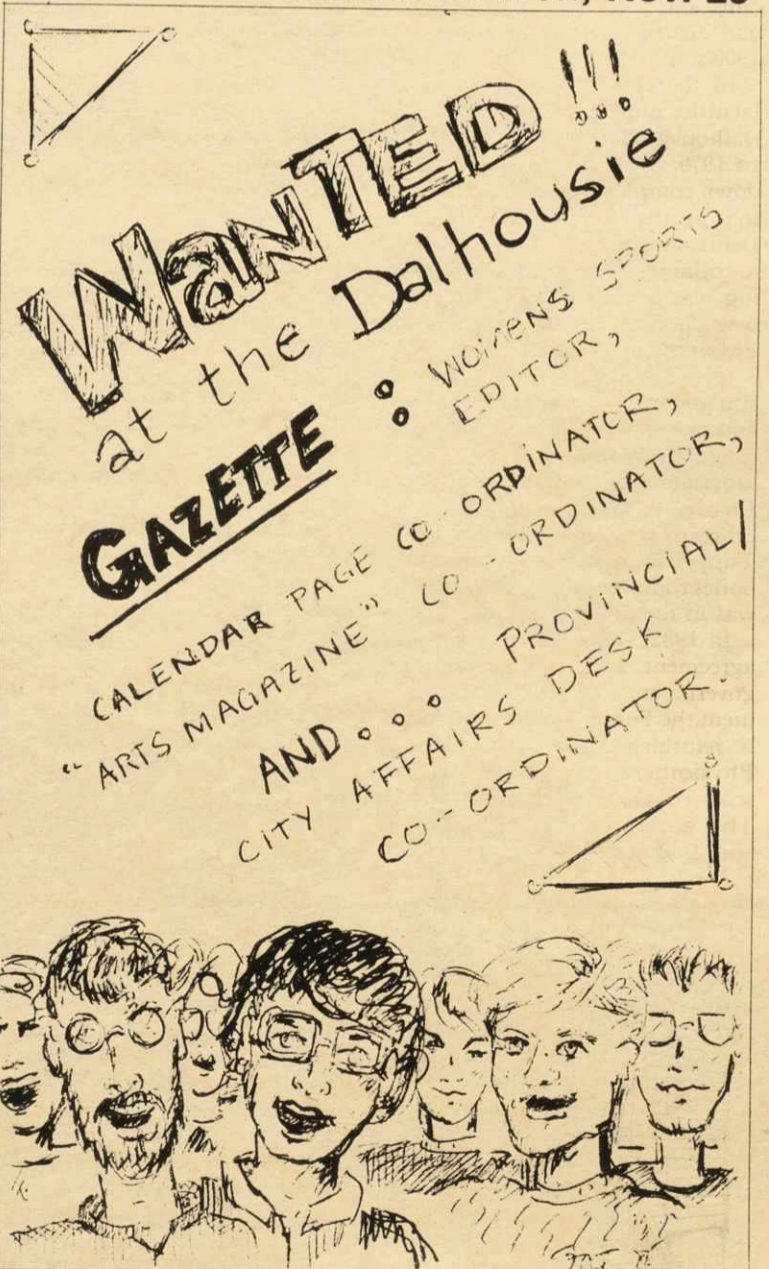 WanTED!!!
at the Dalhousie
GAZETTE : WOMENS SPORTS
EDITOR,
CALENDAR PAGE CO-ORDINATOR,
"ARTS MAGAZINE" CO-ORDINATOR,
AND... PROVINCIAL/
CITY AFFAIRS DESK
CO-ORDINATOR.